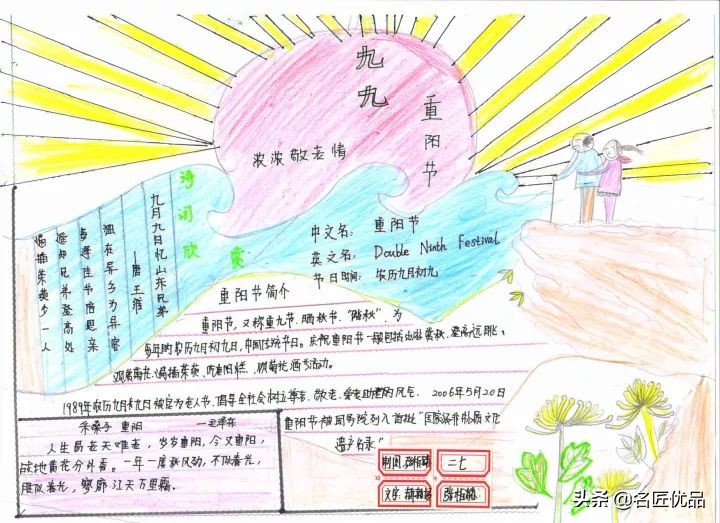 九九
重阳节
浓浓敬老情
诗词欣赏
九月九日忆山东兄弟
——唐 王维
独在异乡为异客
每逢佳节倍思亲
遥知兄弟登高处
遍插茱萸少一人
中文名: 重阳节
英文名: Double Ninth Festival
节日时间: 农历九月初九
重阳节简介
重阳节,又称重九节、晒秋节、“踏秋”,为
每年的农历九月初九日,中国传统节日。庆祝重阳节一般包括出游赏秋、登高远眺、
观赏菊花、遍插茱萸、吃重阳糕、饮菊花酒等活动。
1989年农历九月初九日被定为老人节,倡导全社会树立尊老、敬老、爱老助老的风气。 2006年5月20日
重阳节被国务院列入首批“国家级非物质文化
遗产名录”
采桑子 重阳 ——毛泽东
人生易老天难老,岁岁重阳,今又重阳,
战地黄花分外香。一年一度秋风劲,不似春光,
胜似春光,寥廓江天万里霜。
二七
头条 @名匠优品